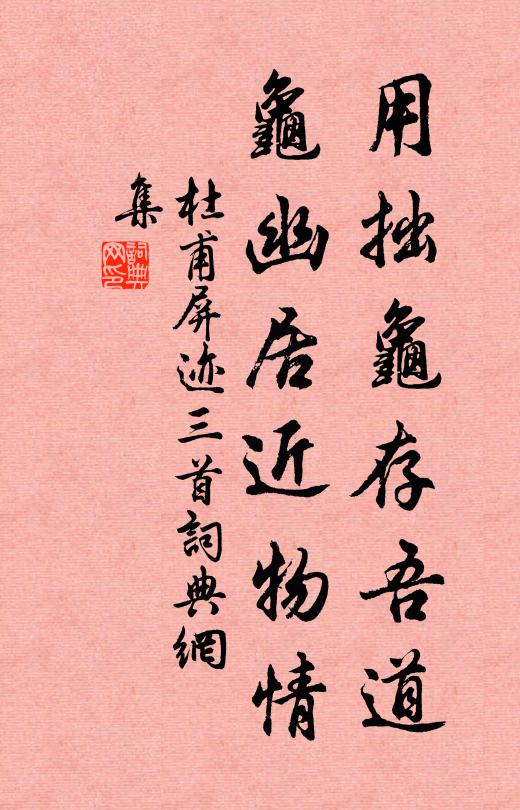 用拙龜存吾道
龜幽居近物情
杜甫屏迹三首詞典網
集
詞典网印